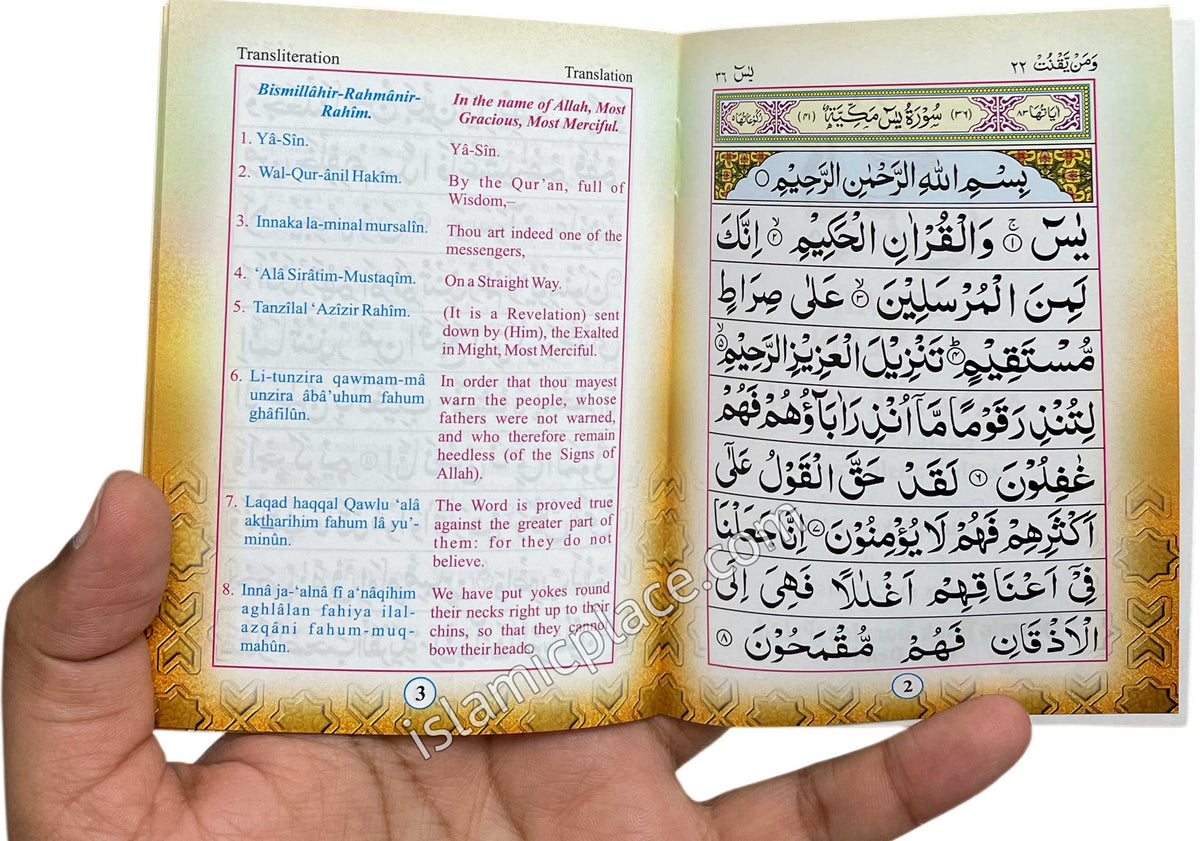 وَمَنْ يَّقْنُتْ ٢٢
يٰسٓ ٣٦
اٰيَاتُهَا ٨٣
(٣٦) سُوْرَةُ يٰسٓ مَكِّيَّةٌ (٤١)
رُكُوْعَاتُهَا ٥
بِسْمِ اللهِ الرَّحْمٰنِ الرَّحِيْمِ ○
يٰسٓ ۚ ١ وَالْقُرْاٰنِ الْحَكِيْمِ ۙ ٢ اِنَّكَ
لَمِنَ الْمُرْسَلِيْنَ ۙ ٣ عَلٰى صِرَاطٍ
مُّسْتَقِيْمٍ ؕ ٤ تَنْزِيْلَ الْعَزِيْزِ الرَّحِيْمِ ۙ ٥
لِتُنْذِرَ قَوْمًا مَّاۤ اُنْذِرَ اٰبَآؤُهُمْ فَهُمْ
غٰفِلُوْنَ ٦ لَقَدْ حَقَّ الْقَوْلُ عَلٰۤى
اَكْثَرِهِمْ فَهُمْ لَا يُؤْمِنُوْنَ ٧ اِنَّا جَعَلْنَا
فِيْۤ اَعْنَاقِهِمْ اَغْلٰلًا فَهِىَ اِلَى
الْاَذْقَانِ فَهُمْ مُّقْمَحُوْنَ ٨
2
Transliteration
Translation
Bismillâhir-Rahmânir-
Rahîm.
In the name of Allah, Most
Gracious, Most Merciful.
1. Yâ-Sîn.
Yâ-Sîn.
2. Wal-Qur-ânil Hakîm.
By the Qur'an, full of
Wisdom,–
3. Innaka la-minal mursalîn.
Thou art indeed one of the
messengers,
4. ‘Alâ Sirâtim-Mustaqîm.
On a Straight Way.
5. Tanzîlal ‘Azîzir Rahîm.
(It is a Revelation) sent
down by (Him), the Exalted
in Might, Most Merciful.
6. Li-tunzira qawmam-mâ
unzira âbâ'uhum fahum
ghâfilûn.
In order that thou mayest
warn the people, whose
fathers were not warned,
and who therefore remain
heedless (of the Signs of
Allah).
7. Laqad haqqal Qawlu ‘alâ
aktharihim fahum lâ yu'-
minûn.
The Word is proved true
against the greater part of
them: for they do not
believe.
8. Innâ ja-‘alnâ fî a‘nâqihim
aghlâlan fahiya ilal-
azqâni fahum-muq-
mahûn.
We have put yokes round
their necks right up to their
chins, so that they cannot
bow their heads
3
islamicplace.com